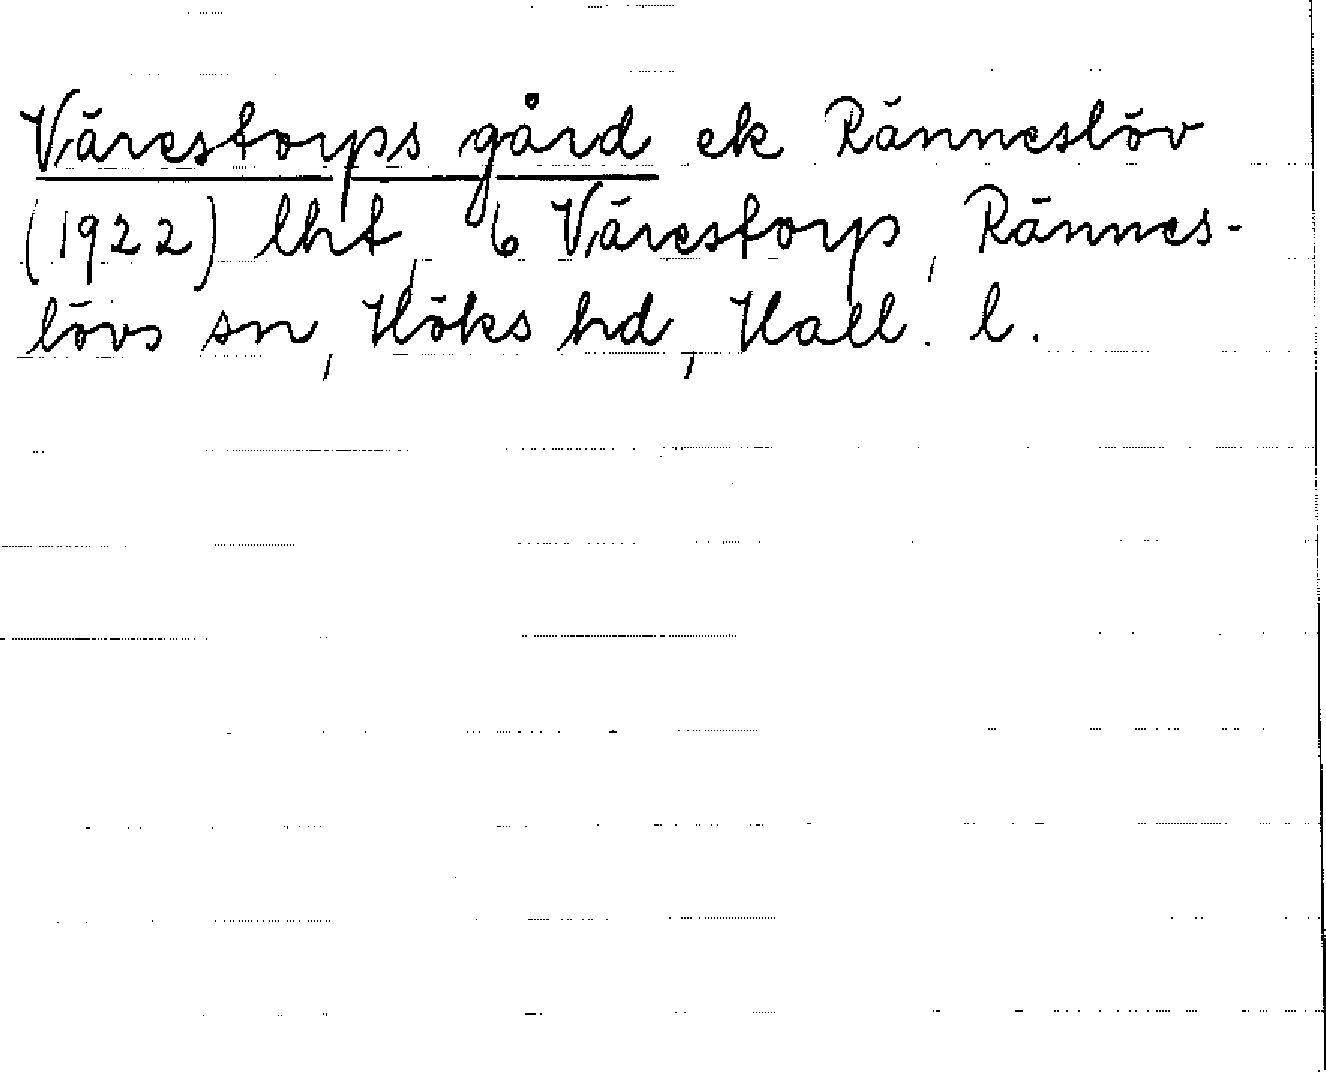 Värestorps gård ek Ränneslöv
(1922) lht, 6 Värestorp, Rännes-
lövs sn, Höks hd, Hall. l.